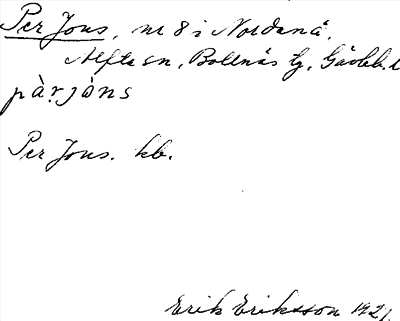 Per Jons, nr 8 i Nordanå,
Alfta sn, Bollnäs tg, Gävleb. l
pàṛjòns
Per Jons. kb.
Erik Eriksson 1921.